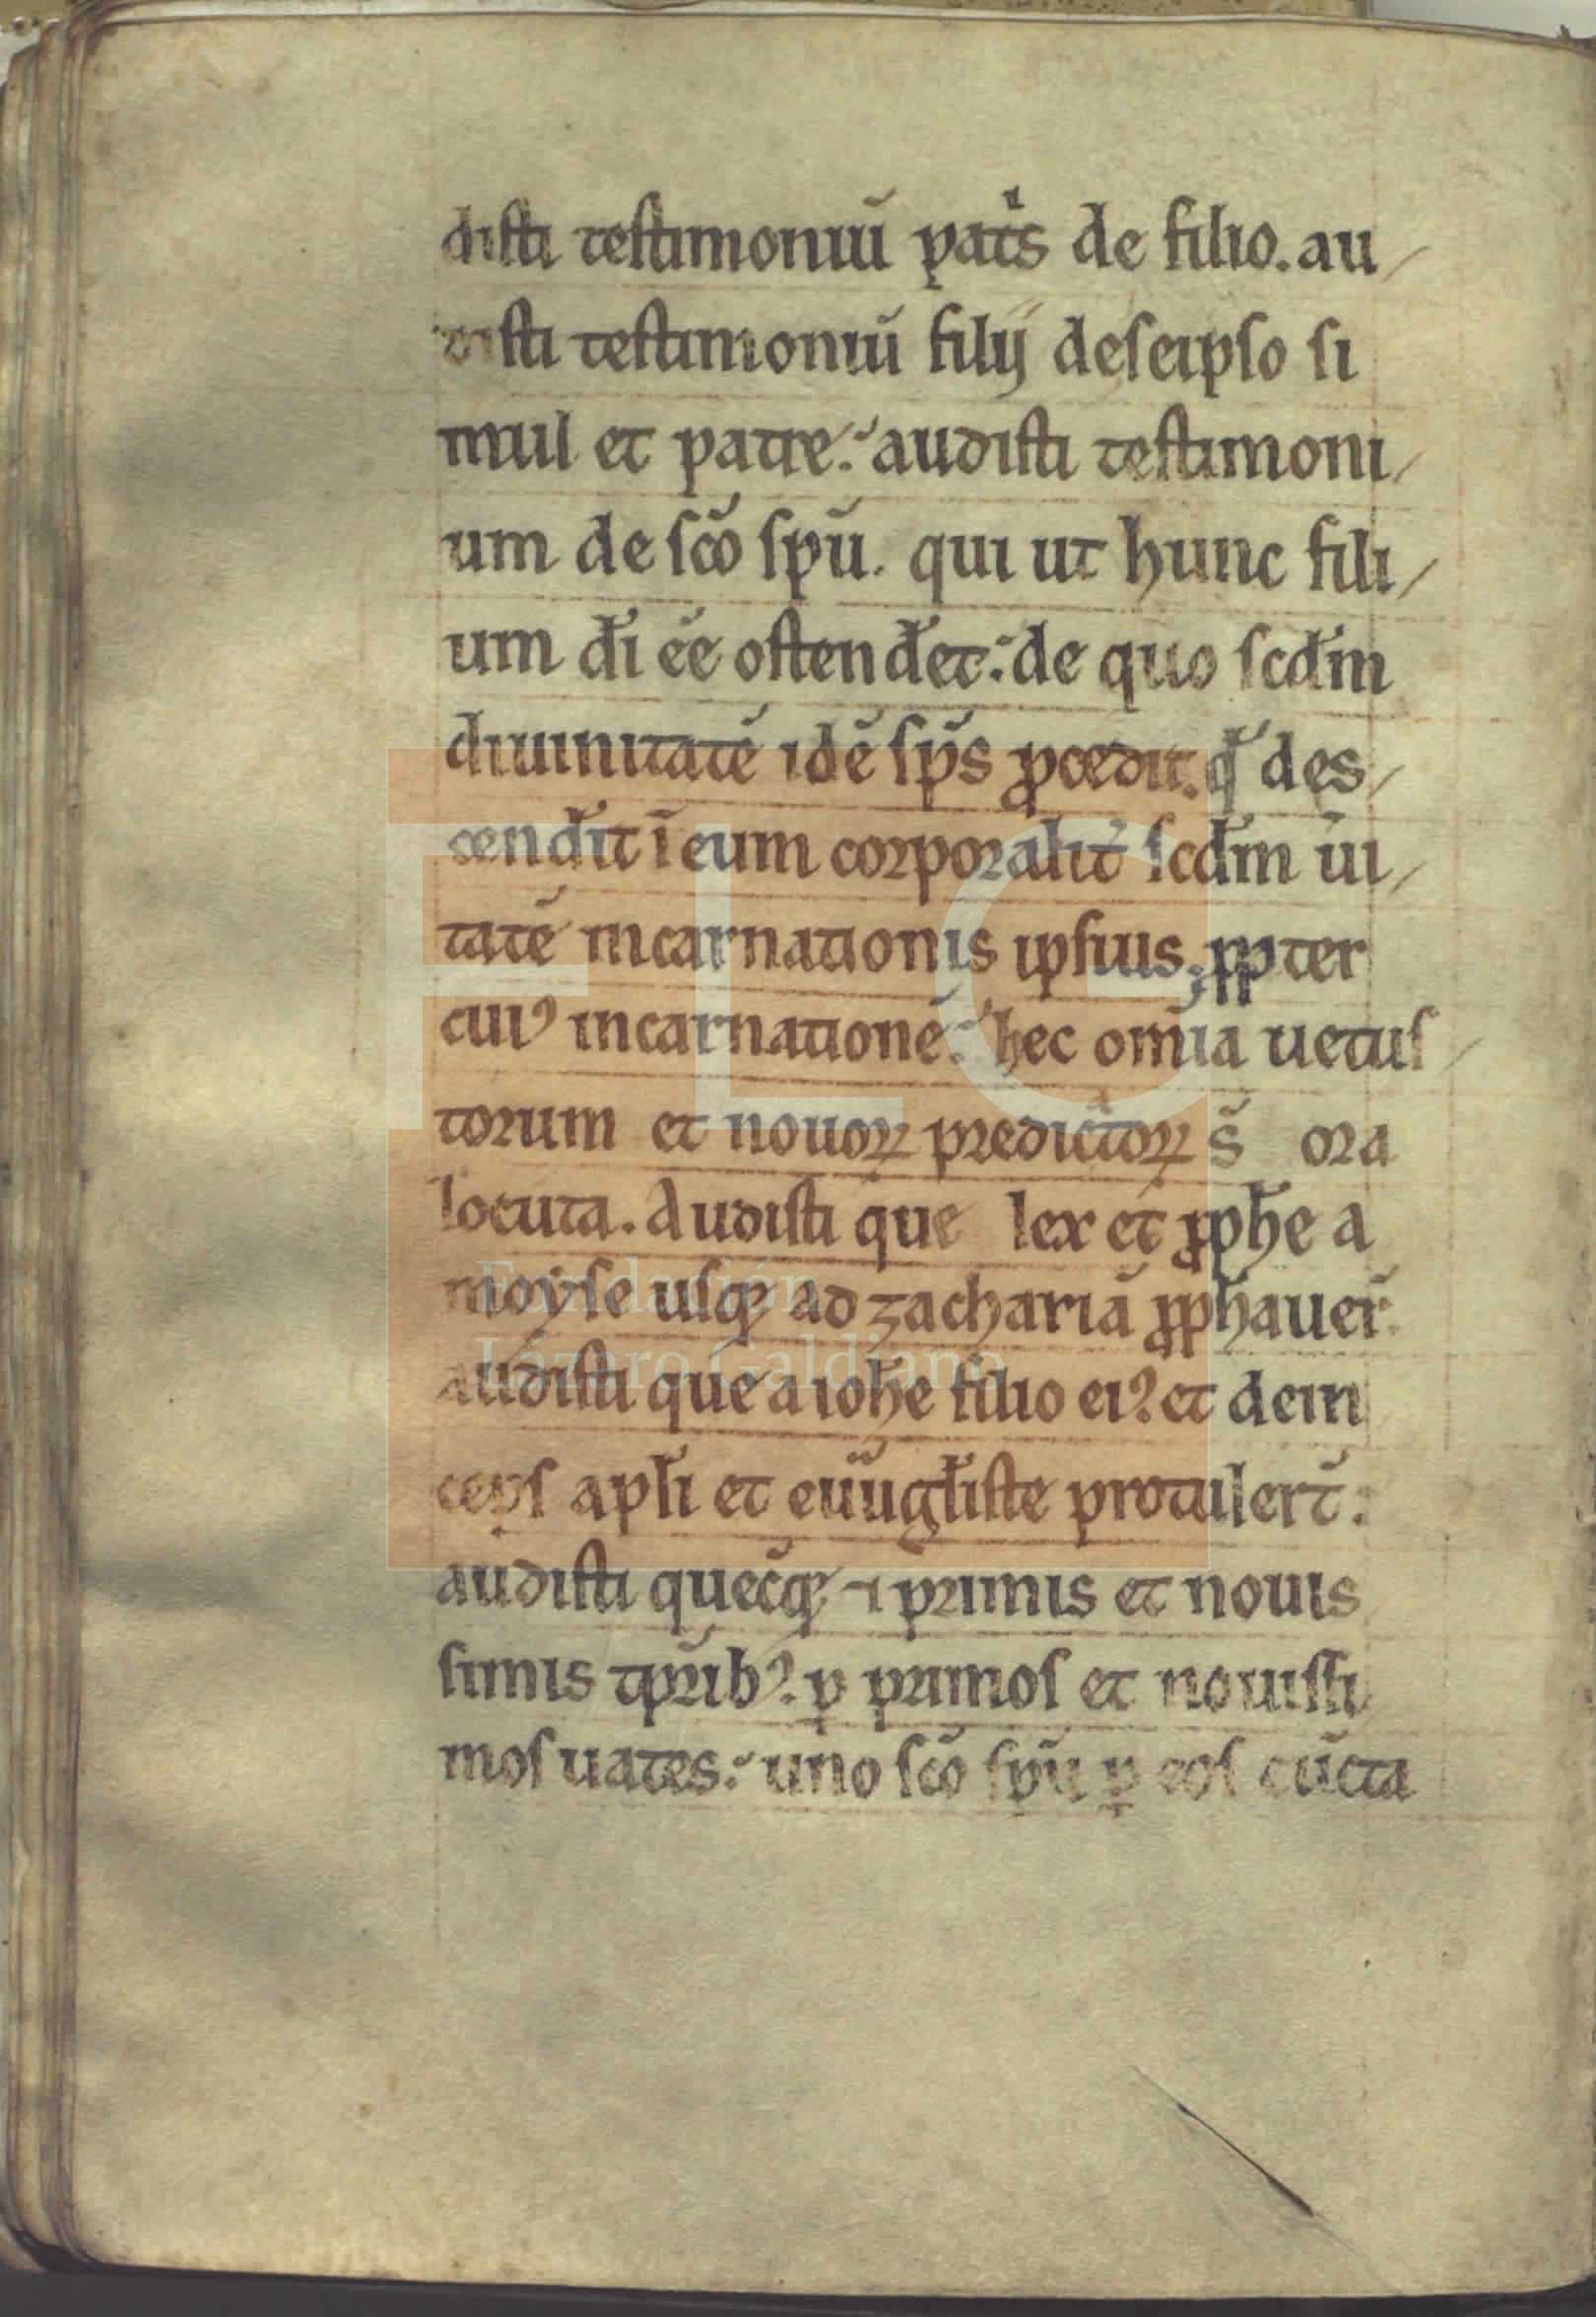 disti testimoniū pat͛s de filio. au/
disti testimoniū filij deseipso si
mul et patre. audisti testimoni/
um de sc̄o sp̄u. qui ut hunc fili/
um dī ēe ostend̄et. de quo scd̄m
diuinitatē idē sp̄s ꝓcedit. q̄ des/
cend̄it ī eum corporalit̄ scd̄m ūi/
tatē incarnationis ipsius; ꝓpter
cuiꝰ incarnationē. hec om̄ia uetus/
torum et nouoꝝ predictoꝝ s̄ ora
locuta. Audisti que lex et ꝓph̄e a
moyse usqꝫ ad zachariā ꝓph̄auer̄.
audisti que a ioh̄e filio eiꝰ et dein
ceps apl̄i et euūgl̄iste protulert̄.
audisti quecūqꝫ ī primis et nouis
simis tp̄ribꝰ. ꝑ primos et nouissi
mos uates. uno sc̄o sp̄u ꝑ eos cūcta
FLG
Fundación
Lázaro Galdiano